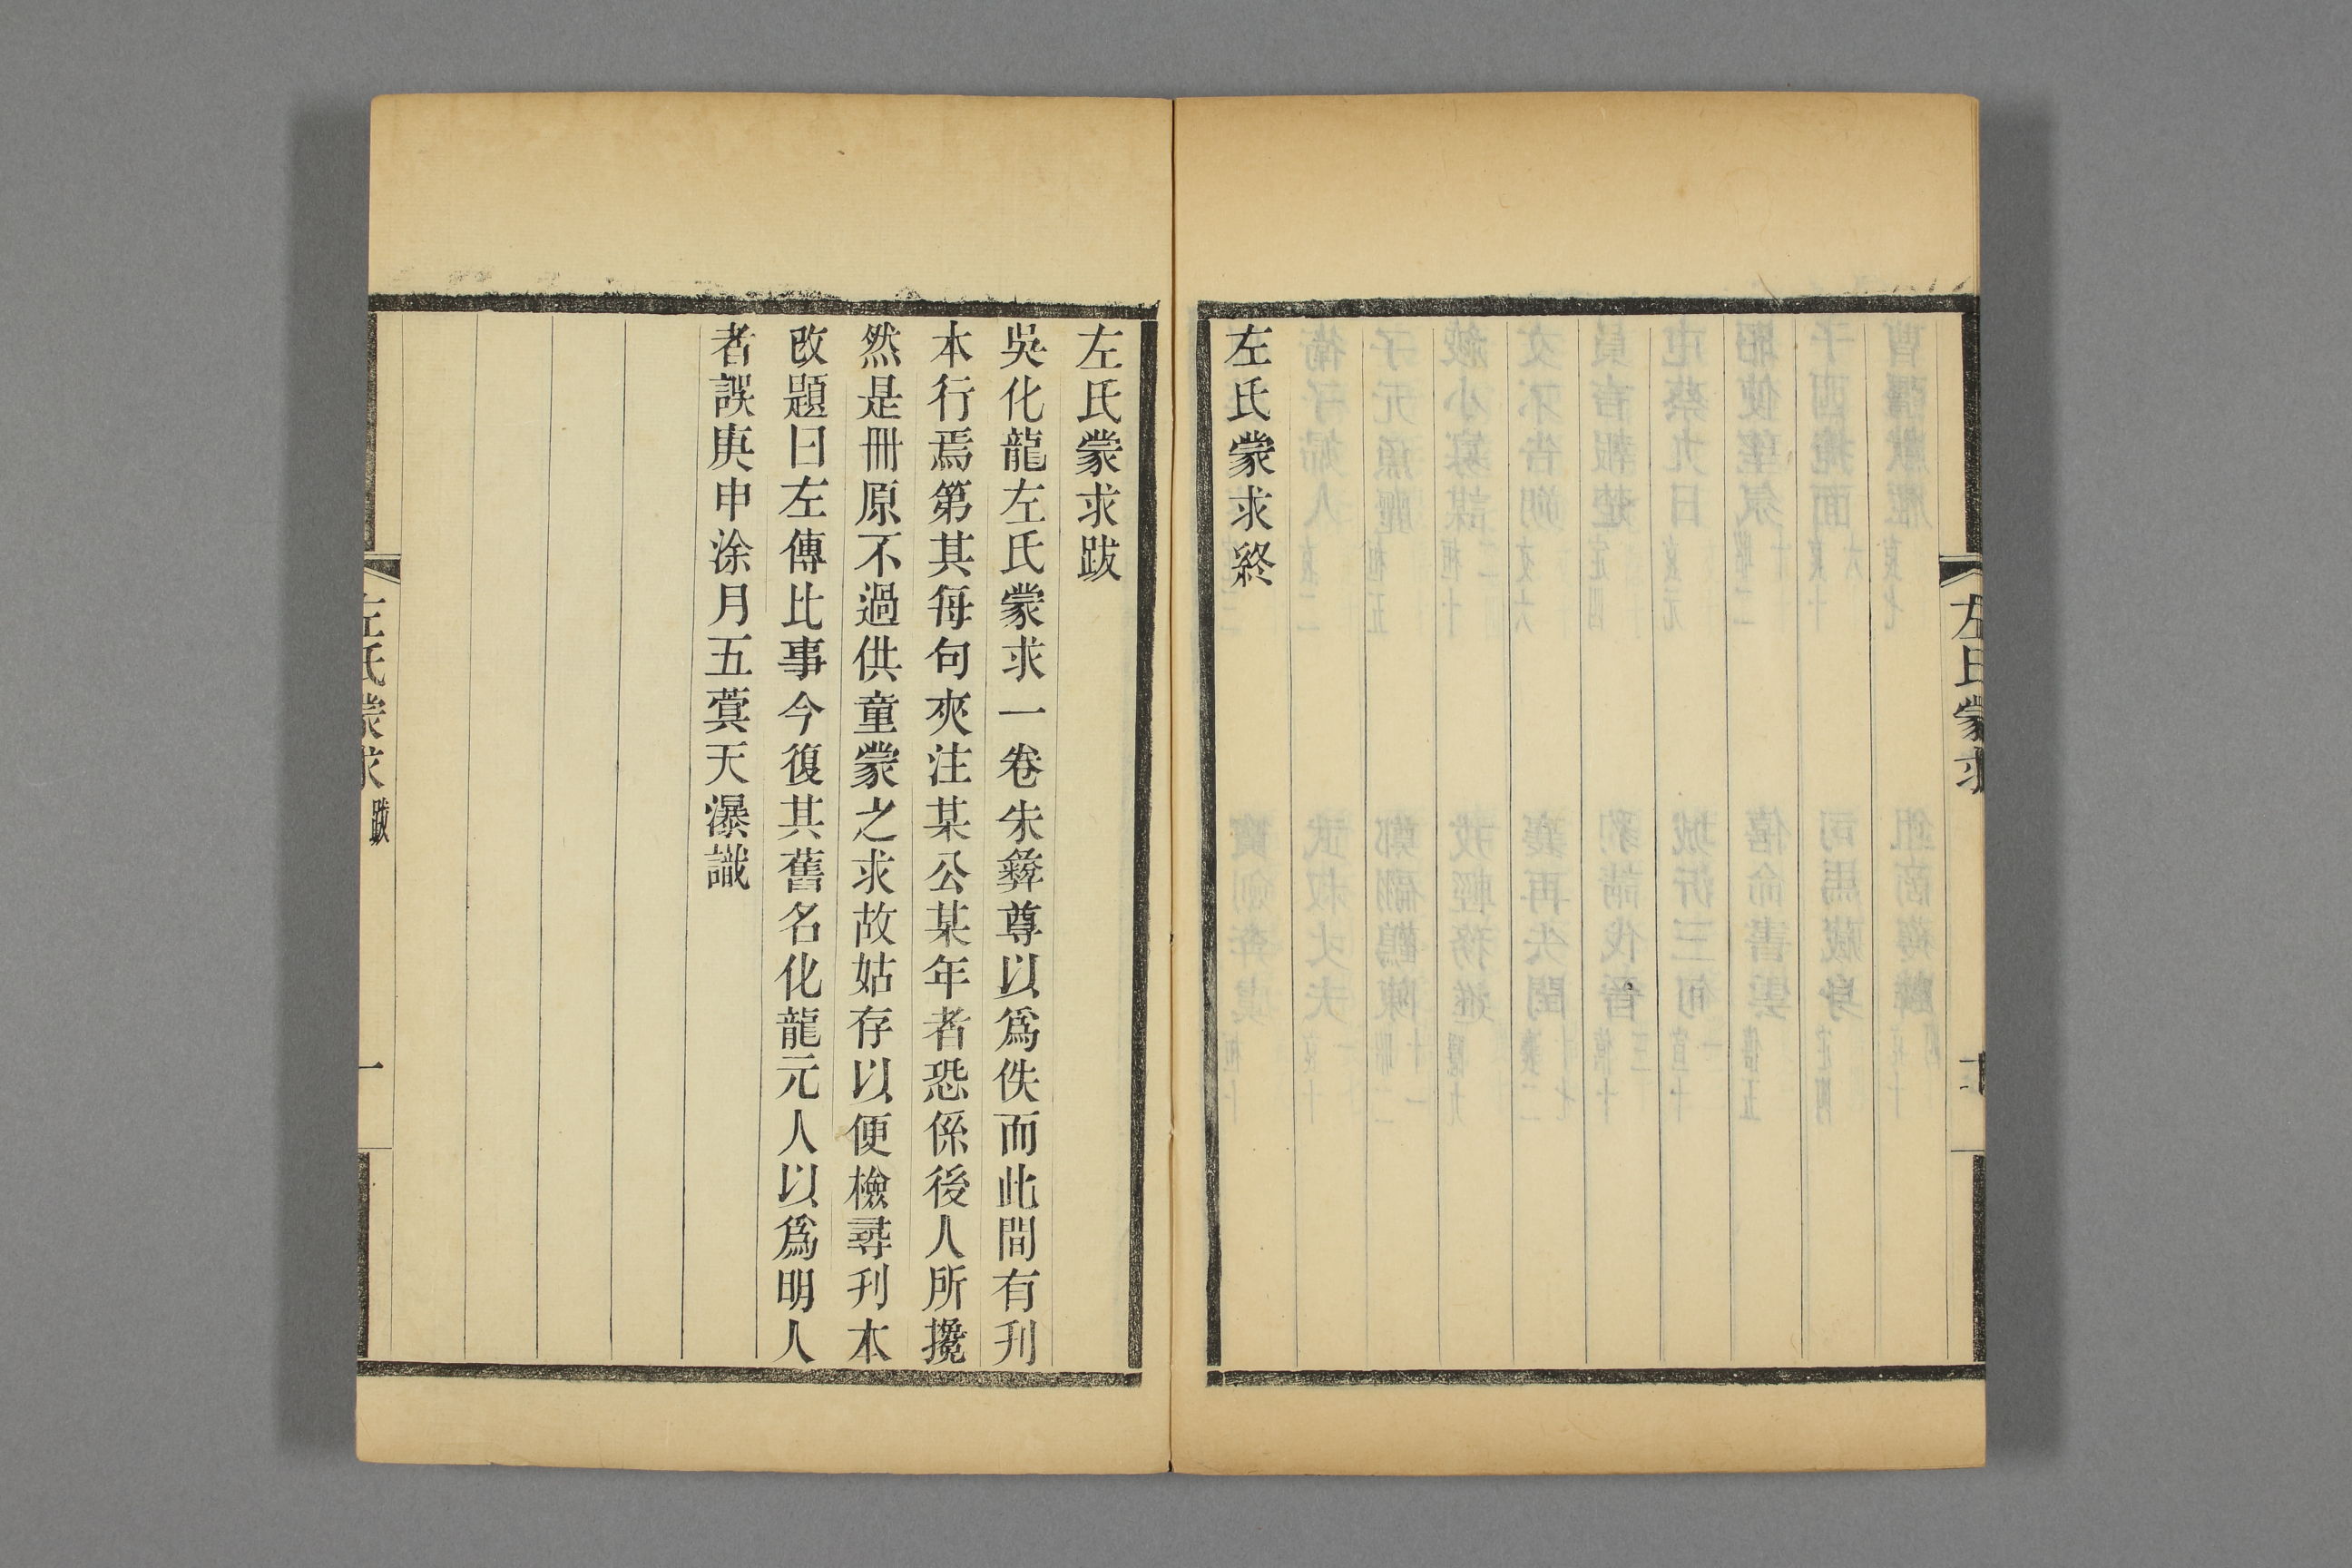 左氏蒙求
左氏蒙求終
左氏蒙求跋
吳化龍左氏蒙求一卷朱彝尊以爲佚而此間有刋
本行焉第其每句夾注某公某年者恐係後人所攙
然是冊原不過供童蒙之求故姑存以便檢尋刋本
改題曰左傳比事今復其舊名化龍元人以爲明人
者誤庚申涂月五蓂天瀑識
左氏蒙求 跋 一